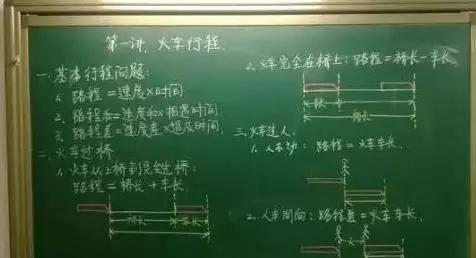 第一讲、火车行程
一、基本行程问题:
1、路程=速度×时间
2、路程和=速度和×相遇时间
3、路程差=速度差×追及时间.
二、火车过桥
1、火车从上桥到完全过桥:
路程=桥长+车长
桥长
车长
2、火车完全在桥上:路程=桥长-车长
车长
桥长
三、火车过人:
1、人不动:路程=火车车长.
2、人车同向:路程差=火车车长.